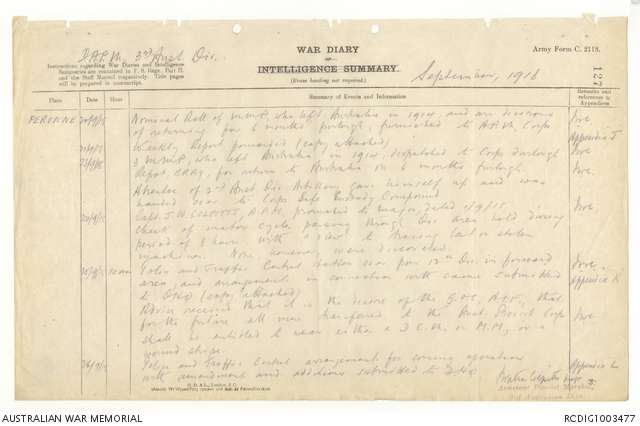 D.A.P.M. 3rd Aust. Div.
WAR DIARY
or
INTELLIGENCE SUMMARY.
(Erase heading not required.)
Army Form C. 2118.
Instructions regarding War Diaries and Intelligence
Summaries are contained in F. S. Regs., Part II.
and the Staff Manual respectively. Title pages
will be prepared in manuscript.
September, 1918
127
Place Date Hour Summary of Events and Information Remarks and references to Appendices
PERONNE 20/9/18 Nominal Roll of M.M.P. who left Australia in 1914, and are desirous
of returning for 6 months furlough, furnished to A.P.M. Corps
21/9/18 Weekly Report forwarded (copy attached) Appendix J
3 M.M.P., who left Australia in 1914, despatched to Corps
Depot, for return to Australia on 6 months furlough.
Absentee of 3rd Aust. Div. Artillery gave himself up and was
handed over to Corps Compound
Capt. J. W. promoted to Major, dated
Check of motor cycles passing through Div. area held during
period of hours with a view to tracing lost or stolen
machines. None, however, were discovered.
Police and Traffic Control taken over from Div. in forward
area, and arrangements in connection with same submitted
to DHQ (copy attached) Appendix K
Advice received that it is the desire of the G.O.C., A.I.F., that
for the future all men transferred to the Aust. Provost Corps
shall be entitled to wear either a D.C.M. or M.M., or a
wound stripe.
26/9/18 Police and Traffic Control arrangements for coming operations
with amendment and additions submitted to DHQ Appendix L
Assistant Provost Marshal,
3rd Australian Division
AUSTRALIAN WAR MEMORIAL
RCDIG1003477